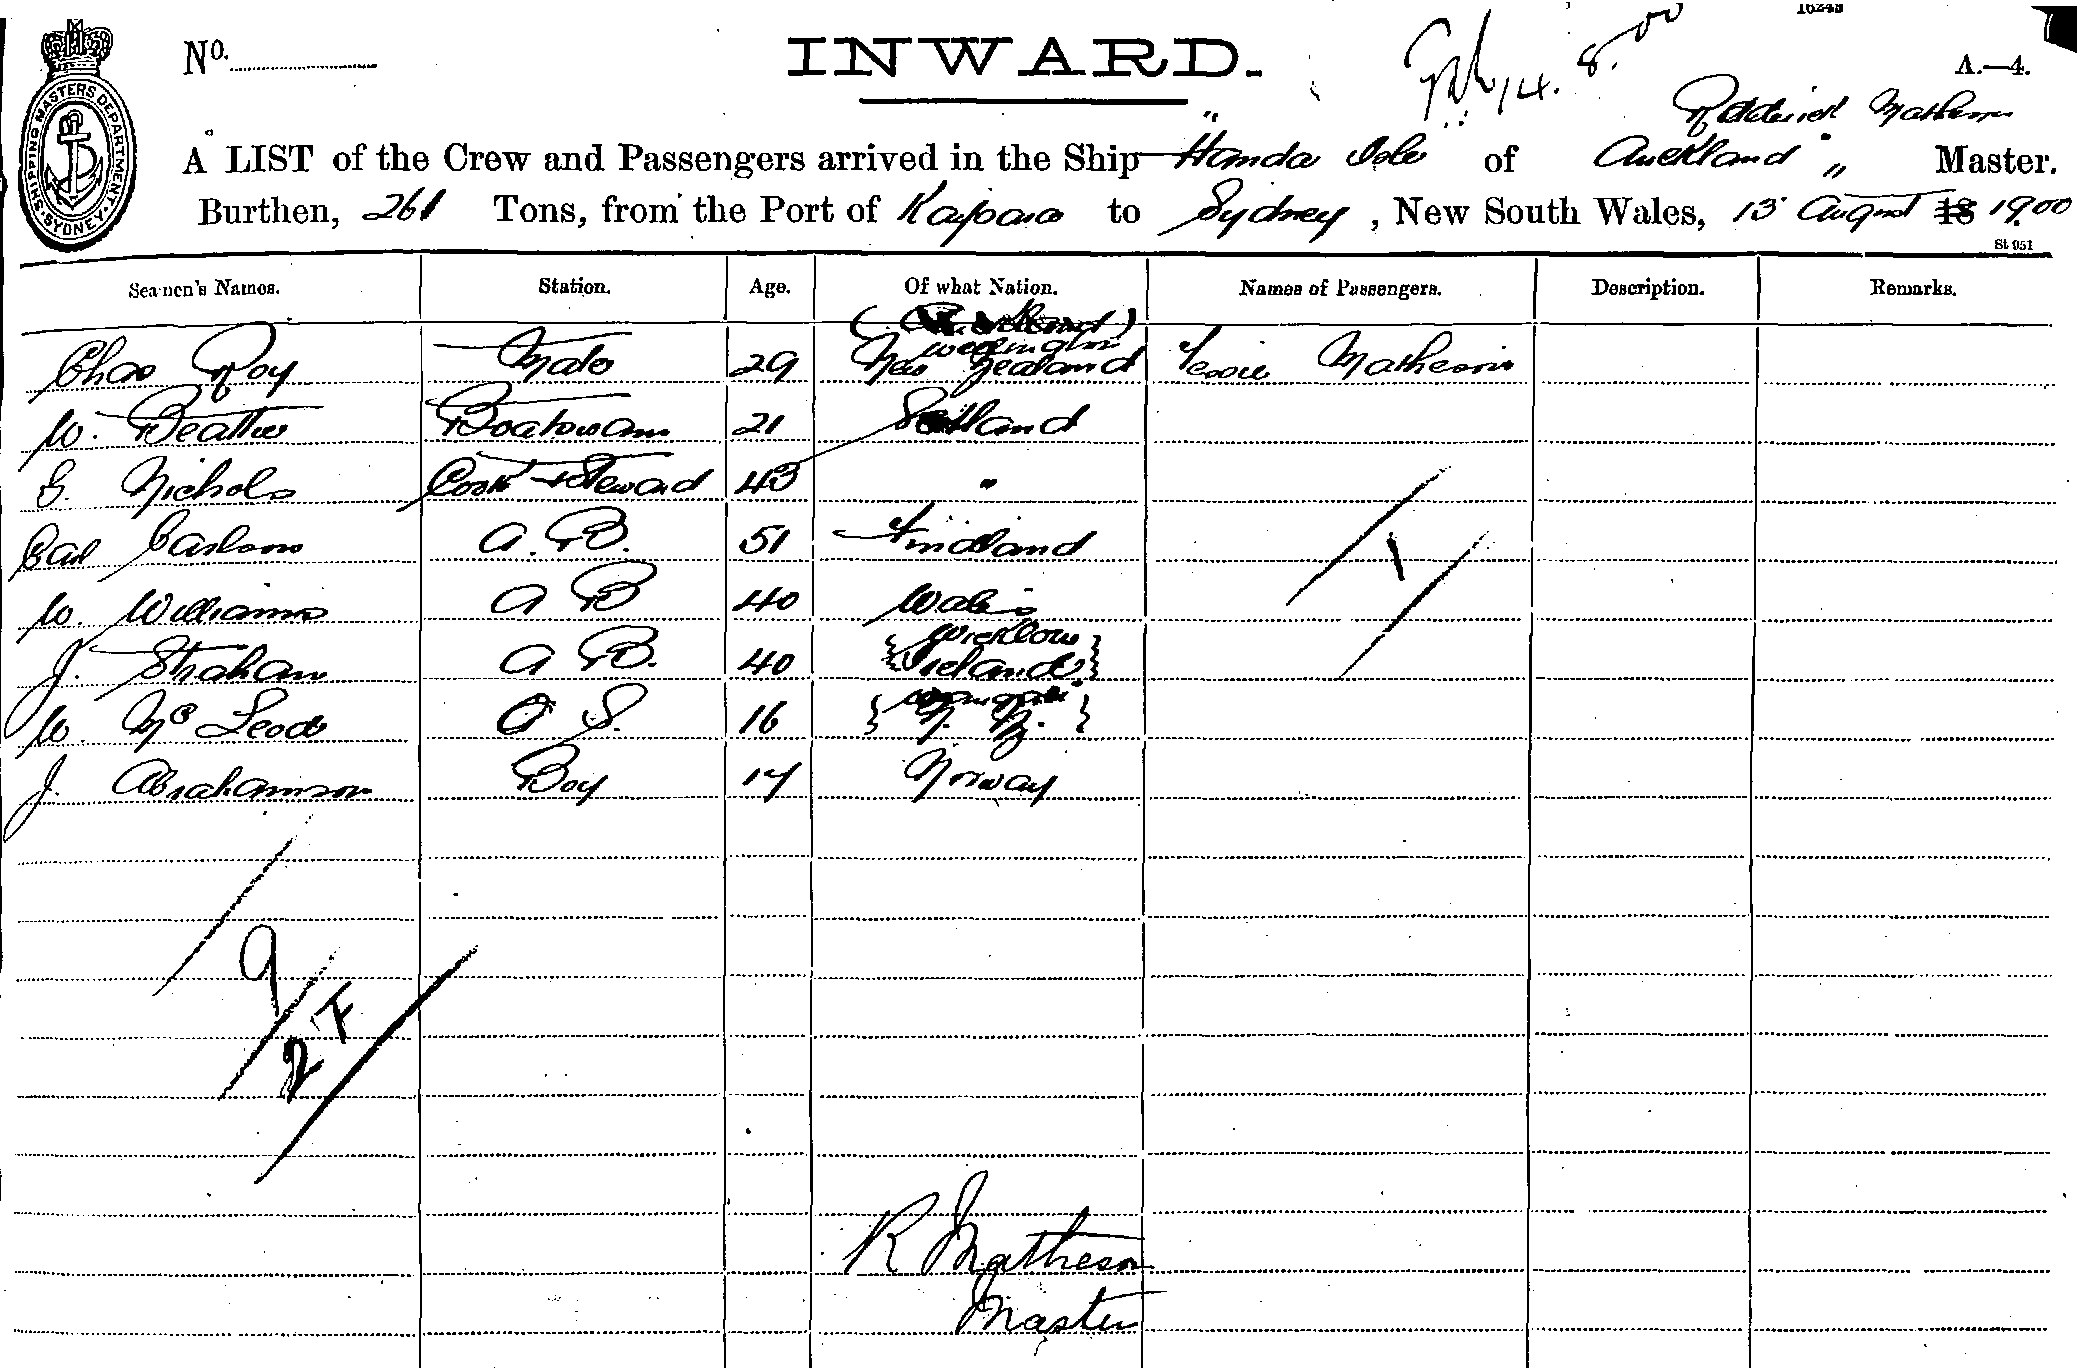 16248
No. INWARD. 14.8.00 A.—4.
SHIPPING MASTERS DEPARTMENT SYDNEY
Roderick Matheson
A LIST of the Crew and Passengers arrived in the Ship "Handa Isle" of Auckland Master.
Burthen, 261 Tons, from the Port of Kaipara to Sydney, New South Wales, 13 August 18 1900
St 951
Seamen's Names. Station. Age. Of what Nation. Names of Passengers. Description. Remarks.
Wellington
Chas Roy Mate 29 New Zealand Jessie Matheson
W. Beattie Boatswain 21 Scotland
G. Nichols Cook + Steward 43 "
Carl Carlson A.B. 51 Findland
W. Williams A B 40 Wales
Wicklow
J. Strahan A B. 40 Ireland
W. Mc Leod O S. 16 N. Z.
J. Abrahamson Boy 17 Norway
1
9
2 F
R Matheson
Master